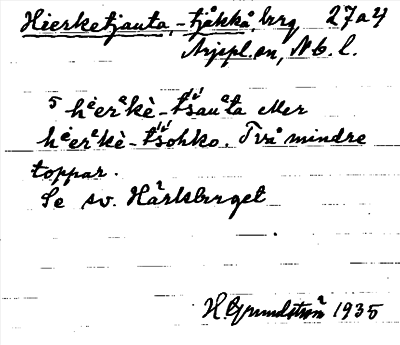 Hierketjauta, -tjåkkå, brg 27a4
Arjepl. sn, Nb. l.
5 hėerᵃkè-tśauᵃta eller
hėerᵃkè-tśohko. Två mindre
toppar.
Se sv. Härksberget
H. Grundström 1935